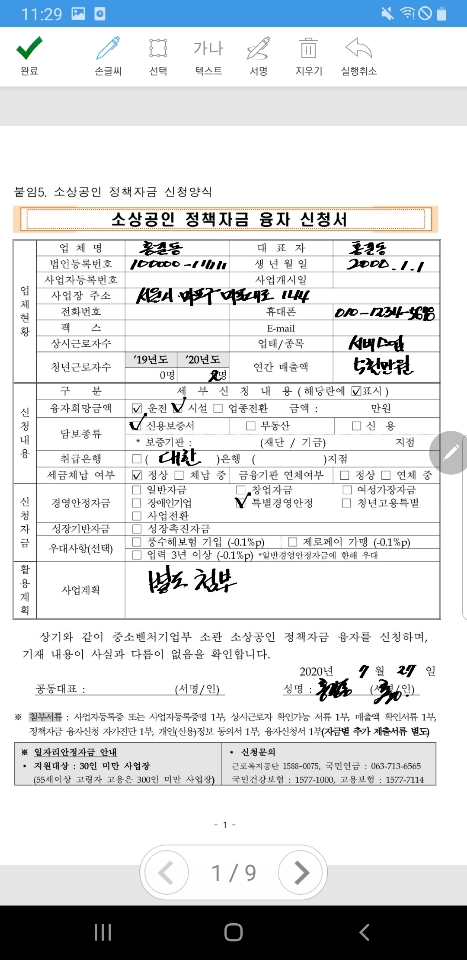 11:29
완료 손글씨 선택 가나 텍스트 서명 지우기 실행취소
붙임5. 소상공인 정책자금 신청양식
소상공인 정책자금 융자 신청서
업체현황
업 체 명 홍길동 대 표 자 홍길동
법인등록번호 100000-11111 생 년 월 일 2000.1.1
사업자등록번호 사업개시일
사업장 주소 서울시 마포구 마포대로 144
전화번호 휴대폰 010-1234-5698
팩 스 E-mail
상시근로자수 업태/종목 서비스업
청년근로자수 '19년도 '20년도 연간 매출액 5천만원
0명 2명
신청내용
구 분 세 부 신 청 내 용 (해당란에 ☑표시)
융자희망금액 ☑ 운전 ☑ 시설 □ 업종전환 금액 : 만원
담보종류 ☑ 신용보증서 □ 부동산 □ 신 용
* 보증기관 : (재단 / 기금) 지점
취급은행 □ ( 대한 )은행 ( )지점
세금체납 여부 ☑ 정상 □ 체납 중 금융기관 연체여부 □ 정상 □ 연체 중
신청자금
경영안정자금 □ 일반자금 □ 창업자금 □ 여성가장자금
□ 장애인기업 ☑ 특별경영안정 □ 청년고용특별
□ 사업전환
성장기반자금 □ 성장촉진자금
우대사항(선택) □ 풍수해보험 가입 (-0.1%p) □ 제로페이 가맹 (-0.1%p)
□ 업력 3년 이상 (-0.1%p) *일반경영안정자금에 한해 우대
활용계획
사업계획 별도 첨부
상기와 같이 중소벤처기업부 소관 소상공인 정책자금 융자를 신청하며,
기재 내용이 사실과 다름이 없음을 확인합니다.
2020년 7 월 27 일
공동대표 : (서명/인) 성명 : 홍길동 (서명/인)
※ 첨부서류 : 사업자등록증 또는 사업자등록증명 1부, 상시근로자 확인가능 서류 1부, 매출액 확인서류 1부,
정책자금 융자신청 자가진단 1부, 개인(신용)정보 동의서 1부, 융자신청서 1부(자금별 추가 제출서류 별도)
※ 일자리안정자금 안내
• 지원대상 : 30인 미만 사업장
(55세이상 고령자 고용은 300인 미만 사업장)
• 신청문의
근로복지공단 1588-0075, 국민연금 : 063-713-6565
국민건강보험 : 1577-1000, 고용보험 : 1577-7114
- 1 -
1 / 9